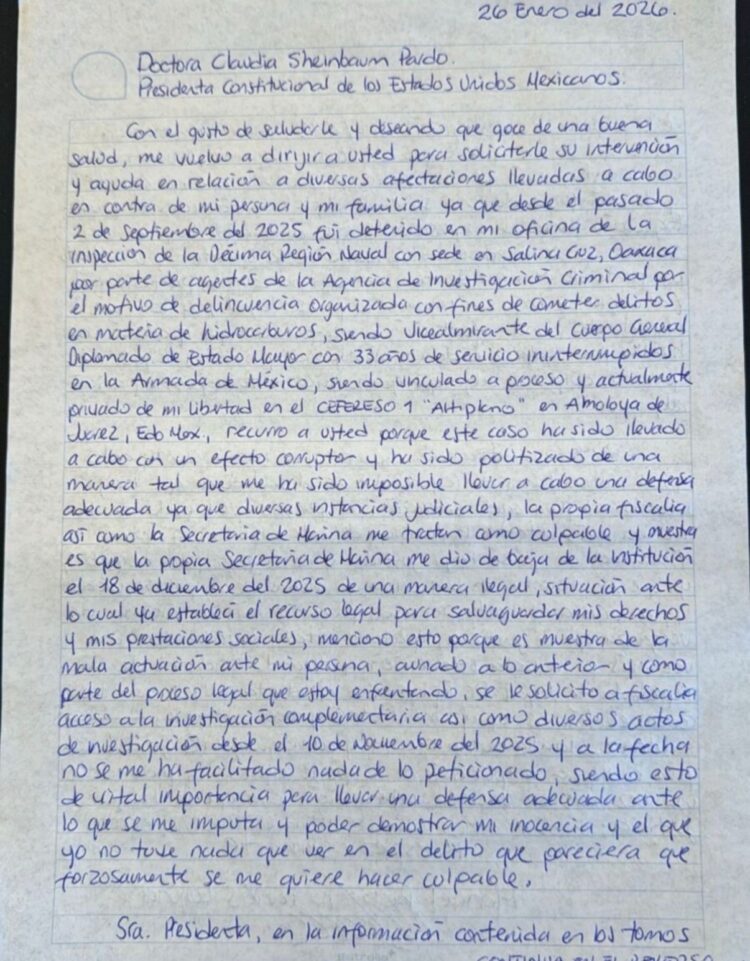 26 Enero del 2026.
Doctora Claudia Sheinbaum Pardo.
Presidenta Constitucional de los Estados Unidos Mexicanos.
Con el gusto de saludarle y deseando que goce de una buena
salud, me vuelvo a dirijir a usted para solicitarle su intervención
y ayuda en relación a diversas afectaciones llevadas a cabo
en contra de mi persona y mi familia ya que desde el pasado
2 de septiembre del 2025 fui detenido en mi oficina de la
inspección de la Décima Región Naval con sede en Salina Cruz, Oaxaca
por parte de agentes de la Agencia de Investigación Criminal por
el motivo de delincuencia organizada con fines de cometer delitos
en materia de hidrocarburos, siendo Vicealmirante del Cuerpo General
Diplomado de Estado Mayor con 33 años de servicio ininterrumpidos
en la Armada de México, siendo vinculado a proceso y actualmente
privado de mi libertad en el CEFERESO 1 "Altiplano" en Almoloya de
Juárez, Edo Mex, recurro a usted porque este caso ha sido llevado
a cabo con un efecto corruptor y ha sido politizado de una
manera tal que me ha sido imposible llevar a cabo una defensa
adecuada ya que diversas instancias judiciales, la propia fiscalia
así como la Secretaria de Marina me tratan como culpable y muestra
es que la popia Secretaria de Marina me dio de baja de la institución
el 18 de diciembre del 2025 de una manera ilegal, situación ante
lo cual ya establecí el recurso legal para salvaguardar mis derechos
y mis prestaciones sociales, menciono esto porque es muestra de la
mala actuación ante mi persona, aunado a lo anterior y como
parte del proceso legal que estoy enfrentando, se le solicito a fiscalia
acceso a la investigación complementaria asi como diversos actos
de investigación desde el 10 de Noviembre del 2025 y a la fecha
no se me ha facilitado nada de lo peticionado, siendo esto
de vital importancia para llevar una defensa adecuada ante
lo que se me imputa y poder demostrar mi inocencia y el que
yo no tuve nada que ver en el delito que pareciera que
forzosamente se me quiere hacer culpable.
Sra. Presidenta, en la información contenida en los tomos
CONTINUA EN EL REVERSO